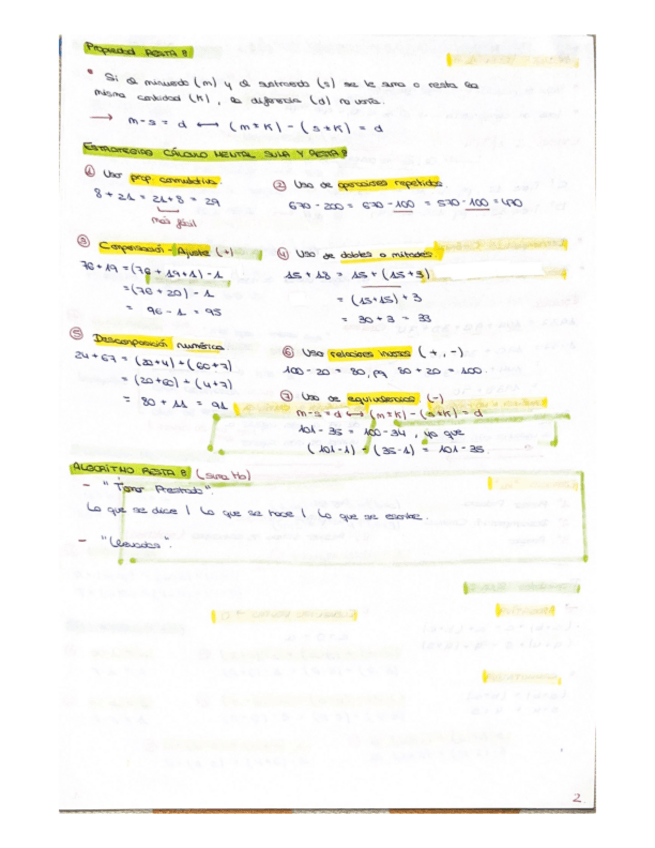 Propiedad RESTA
Si el minuendo (m) y el sustraendo (s) se le suma o resta la
misma cantidad (K), la diferencia (d) no varía.
→ m-s = d ⟷ (m±K) - (s±K) = d
ESTRATEGIAS CÁLCULO MENTAL SUMA Y RESTA
① Usar prop conmutativa.
8 + 21 = 21+8 = 29
más fácil
② Uso de operaciones repetidas
670 - 200 = 670 - 100 = 570 - 100 = 470
③ Compensación - Ajuste (+)
76 + 19 = (76 + 19+1) - 1
= (76 + 20) - 1
= 96 - 1 = 95
④ Uso de dobles o mitades
15 + 18 = 15 + (15 + 3)
= (15+15) + 3
= 30 + 3 = 33
⑤ Descomposición numérica
24 + 67 = (20+4) + (60+7)
= (20+60) + (4+7)
= 80 + 11 = 91
⑥ Uso relaciones inversas (+, -)
100 - 20 = 80, pq 80 + 20 = 100.
⑦ Uso de equivalencias (-)
m-s = d ⟷ (m±K) - (s±K) = d
101 - 35 = 100 - 34, ya que
(101-1) - (35-1) = 101 - 35
ALGORITMO RESTA
- "Tomar Prestado".
Lo que se dice | Lo que se hace | Lo que se escribe.
- "Llevadas".
2